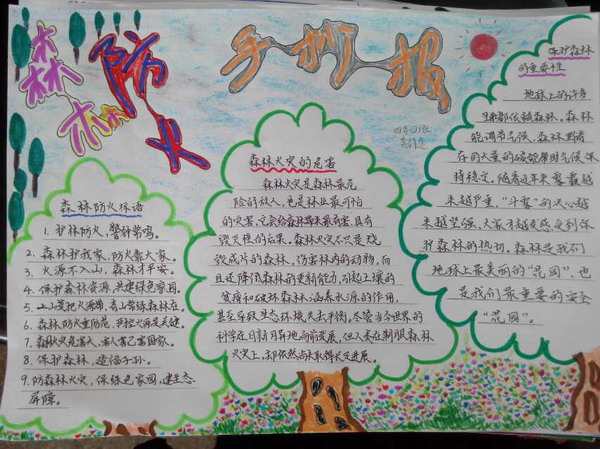 森林防火
手抄报
森林防火标语
1. 护林防火，警钟常鸣。
2. 森林护我家，防火靠大家。
3. 火源不入山，森林才平安。
4. 保护森林资源，共建绿色家园。
5. 上山莫把火源带，青山常绿森林在。
6. 森林防火重防范，
7. 森林火灾是害，害人害己害国家。
8. 保护森林，造福子孙。
9. 防森林火灾，保绿色家园，建生态
屏障。
森林火灾的危害
森林火灾是森林最危
险的敌人，也是林业最可怕
的灾害，它会给森林带来最有害，具有
毁灭性的后果。森林火灾不只是烧
毁成片的森林，伤害林内的动物，而
且还降低森林的更新能力，引起土壤的
贫瘠和破坏森林涵养水源的作用，
甚至导致生态环境失去平衡。尽管当今世界的
科学在日新月异地向前发展，但人类在制服森林
火灾上，却依然尚未取得长足进展。
保护森林
的重要性
地球上的许多
都依赖森林。森林
能调节气候，森林
在同大量的
持稳定。随着近年来
越来越严重，
来越坚强，大家才越发感受到保
护森林的热切，森林是我们
地球上最美丽的“花园”，也
是我们最重要的安全
“花园”。